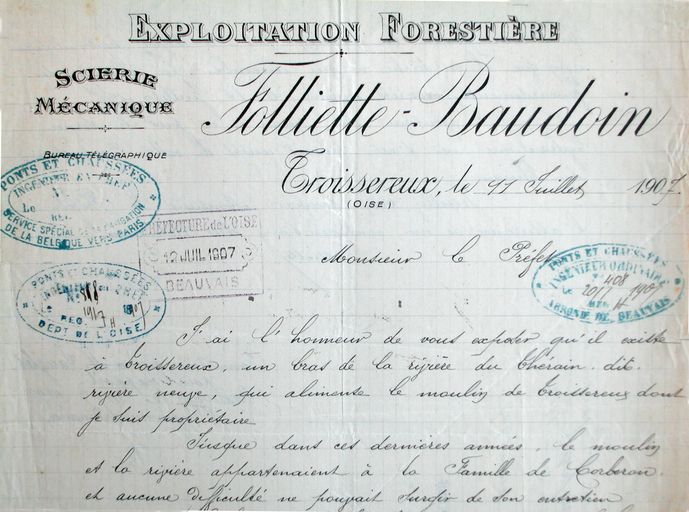 EXPLOITATION FORESTIÈRE
SCIERIE
MÉCANIQUE
Folliette-Baudoin
BUREAU TÉLÉGRAPHIQUE
Troissereux, le 11 Juillet 1907
(OISE)
PONTS ET CHAUSSÉES
INGÉNIEUR EN CHEF
N.
Le
REG.
SERVICE SPÉCIAL DE LA NAVIGATION
DE LA BELGIQUE VERS PARIS
PRÉFECTURE de L'OISE
12 JUIL 1907
BEAUVAIS
Monsieur le Préfet
PONTS ET CHAUSSÉES
INGÉNIEUR ORDINAIRE
N° 408
Le 20/7 1907
REG. H
ARROND. DE BEAUVAIS
PONTS ET CHAUSSÉES
INGÉNIEUR EN CHEF
N°
REG. H
DEPT DE L'OISE
J'ai l'honneur de vous exposer qu'il existe
à Troissereux, un bras de la rivière du Thérain dit
rivière neuve, qui alimente le moulin de Troissereux dont
je suis propriétaire
Jusque dans ces dernières années, le moulin
et la rivière appartenaient à la Famille de Corberon.
et aucune difficulté ne pouvait surgir de son entretien